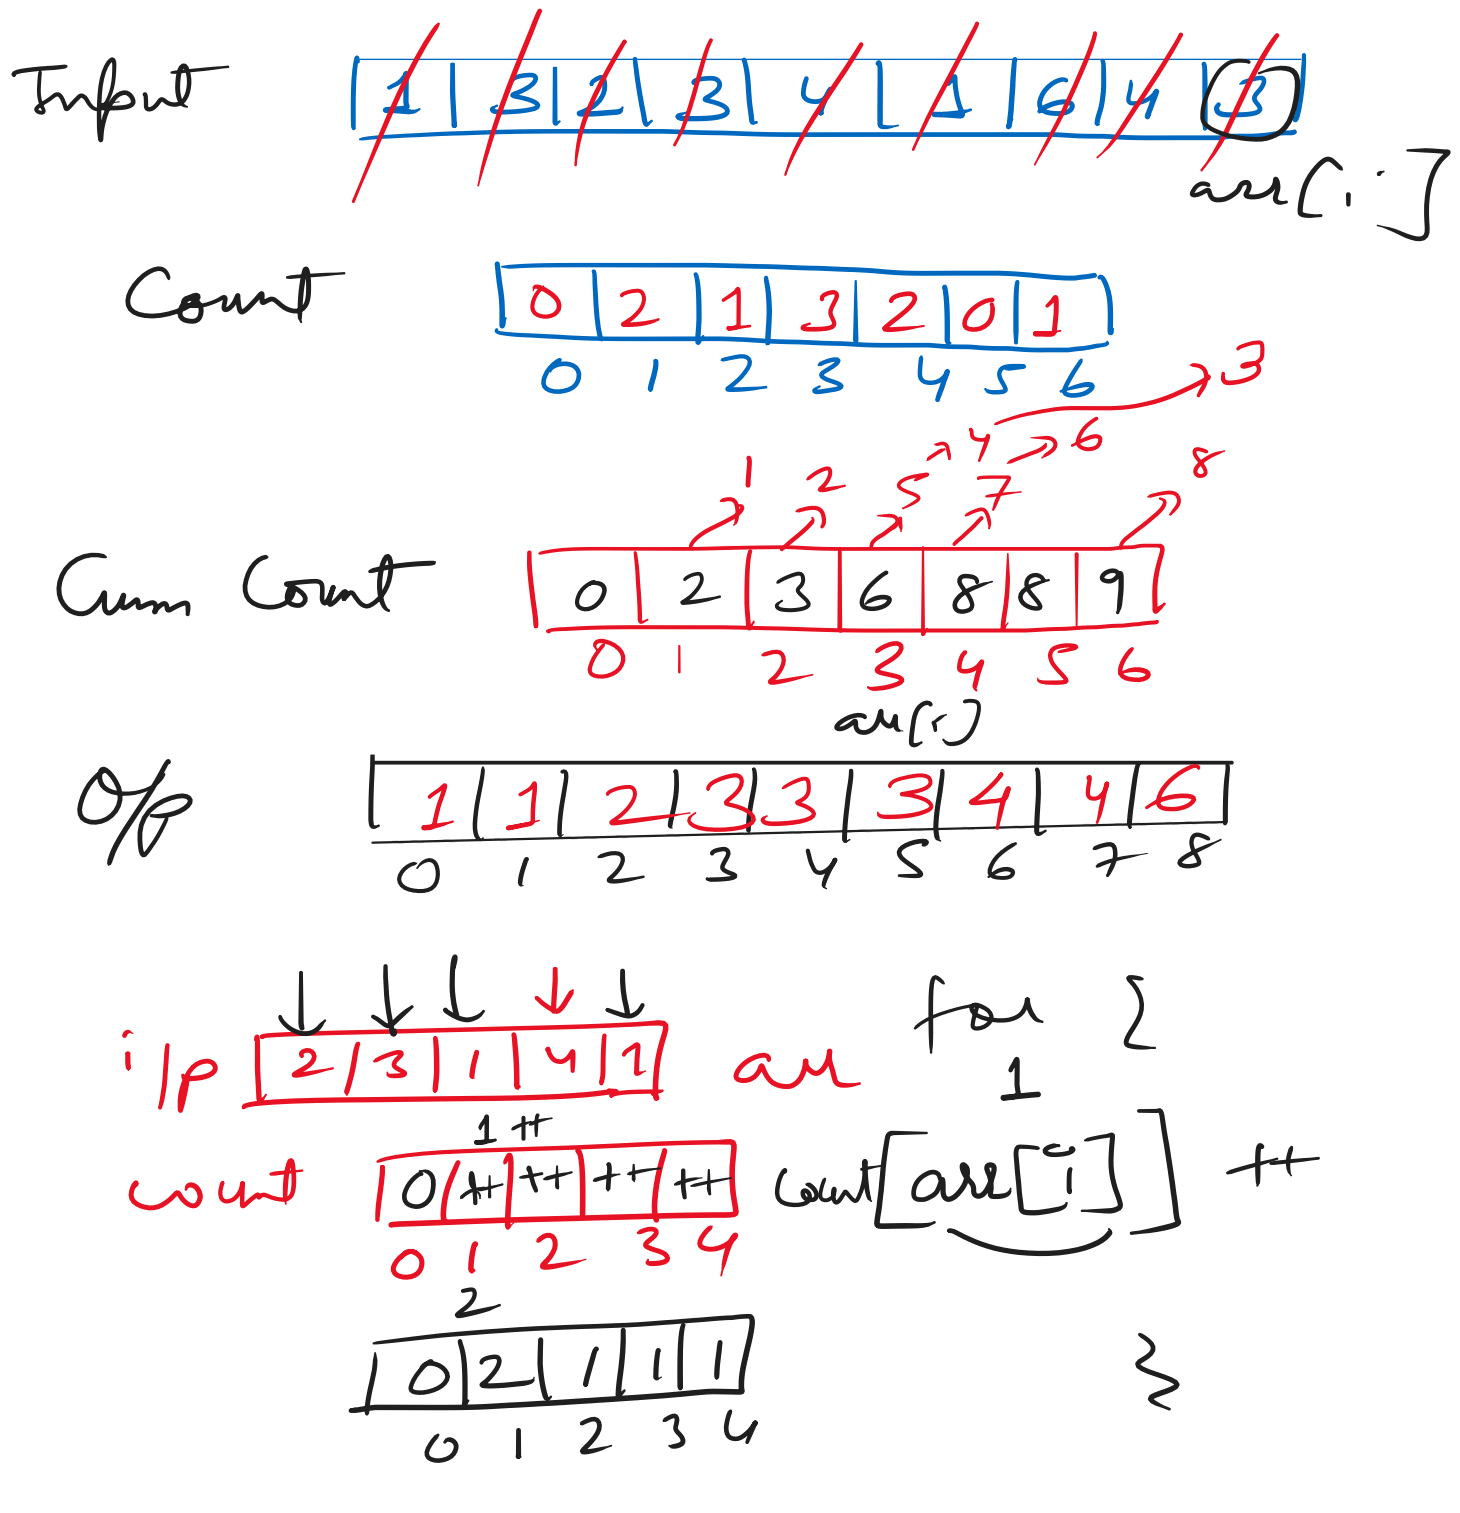 Input 1 3 2 3 4 1 6 4 3
arr[i]
Count 0 2 1 3 2 0 1
0 1 2 3 4 5 6
3
4 6
1 2 5 7 8
Cum Count 0 2 3 6 8 8 9
0 1 2 3 4 5 6
arr[i]
O/p 1 1 2 3 3 3 4 4 6
0 1 2 3 4 5 6 7 8
for {
i/p 2 3 1 4 1 arr
1
1 ++
count 0 ++ ++ ++ ++ count[arr[i]] ++
0 1 2 3 4
2
0 2 1 1 1 }
0 1 2 3 4